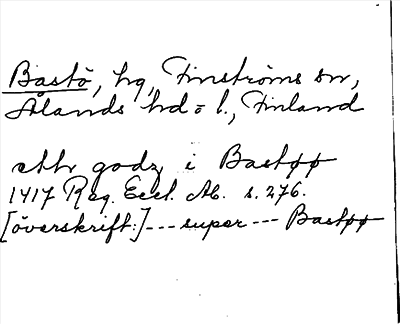 Bastö, hg, Finströms sn,
Ålands hd = l., Finland
ett godz i Bastøø
1417 Reg. Eccl. Ab. s. 276.
[överskrift:] --- super --- Bastøø